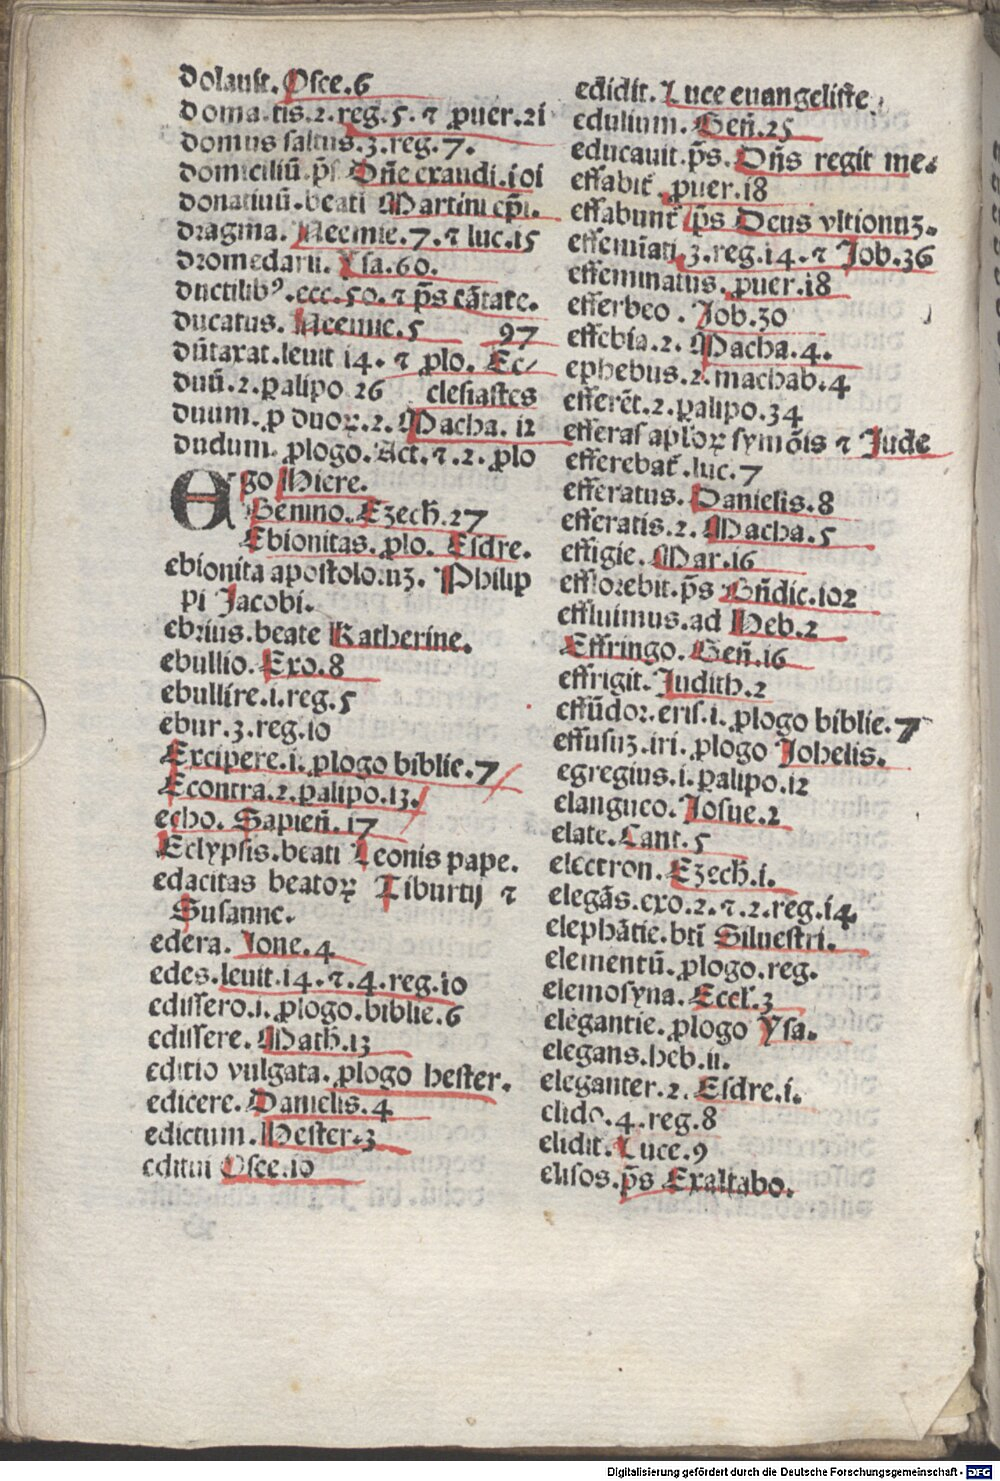 dolauit. Osee.6
domatis.2.reg.5.⁊ ꝓuer.21
domus saltus.3.reg.7.
domiciliū.ps̄ Dn̄e exaudi.101
donatiuū.beati Martini ep̄i.
dragma. Neemie.7.⁊ luc.15
dromedarii. Ysa.60.
ductilibꝰ.ecc.50.⁊ p̄s cātate.
ducatus. Neemie.5 97
dūtaxat.leuit 14.⁊ ꝓlo. Ec-
duū.2.ꝑalipo 26 clesiastes
duum.p duoꝝ.2.Macha.12
dudum.ꝓlogo.Act.⁊.2.ꝓlo
Ego Hiere.
Benino.Ezech̄.27
Ebionitas.ꝓlo. Esdre.
ebionita apostoloruꝫ. Philip
pi Jacobi.
ebrius.beate Katherine.
ebullio. Exo.8
ebullire.1.reg.5
ebur.3.reg.10
Excipere.1.ꝓlogo biblie.7
Econtra.2.ꝑalipo.13.
echo. Sapien̄.17
Eclypsis.beati Leonis pape.
edacitas beatoꝝ Tiburtij ⁊
Susanne.
edera. Jone.4
edes.leuit.14.⁊.4.reg.10
edissero.1.ꝓlogo.biblie.6
edissere. Math̄.13
editio vulgata.ꝓlogo hester.
edicere.Danielis.4
edictum.Hester.3
editui Osee.10
edidit. Luce euangeliste
edulium. Gen̄.25
educauit.p̄s. Dn̄s regit me.
effabit̄ .ꝓuer.18
effabunt̄ p̄s Deus vltionuꝫ.
effemīati 3.reg.14.⁊ Job.36
effeminatus.ꝓuer.18
efferbeo . Job.30
effebia.2.Macha.4.
ephebus.2.machab.4
efferēt.2.ꝑalipo.34
efferas apl̄oꝝ symōis ⁊ Jude
efferebat̄.luc.7
efferatus. Danielis.8
efferatis.2.Macha.5
effigie. Mar.16
efflorebit.p̄s Bn̄dic.102
effluimus.ad Heb.2
Effringo. Gen̄.16
effrigit. Judith.2
effūdor.eris.1.ꝓlogo biblie.7
effusuꝫ.iri.ꝓlogo Johelis.
egregius.1.ꝑalipo.12
elangueo. Josue.2
elate. Cant.5
electron. Ezech̄.1.
elegās.exo.2.⁊.2.reg.14.
elephātie.bt̄i Siluestri.
elementū.ꝓlogo.reg.
elemosyna. Eccl̄.3
elegantie.ꝓlogo Ysa.
elegans.heb.11.
eleganter.2. Esdre.1.
elido.4.reg.8
elidit. Luce.9
elisos.p̄s Exaltabo.
Digitalisierung gefördert durch die Deutsche Forschungsgemeinschaft - DFG